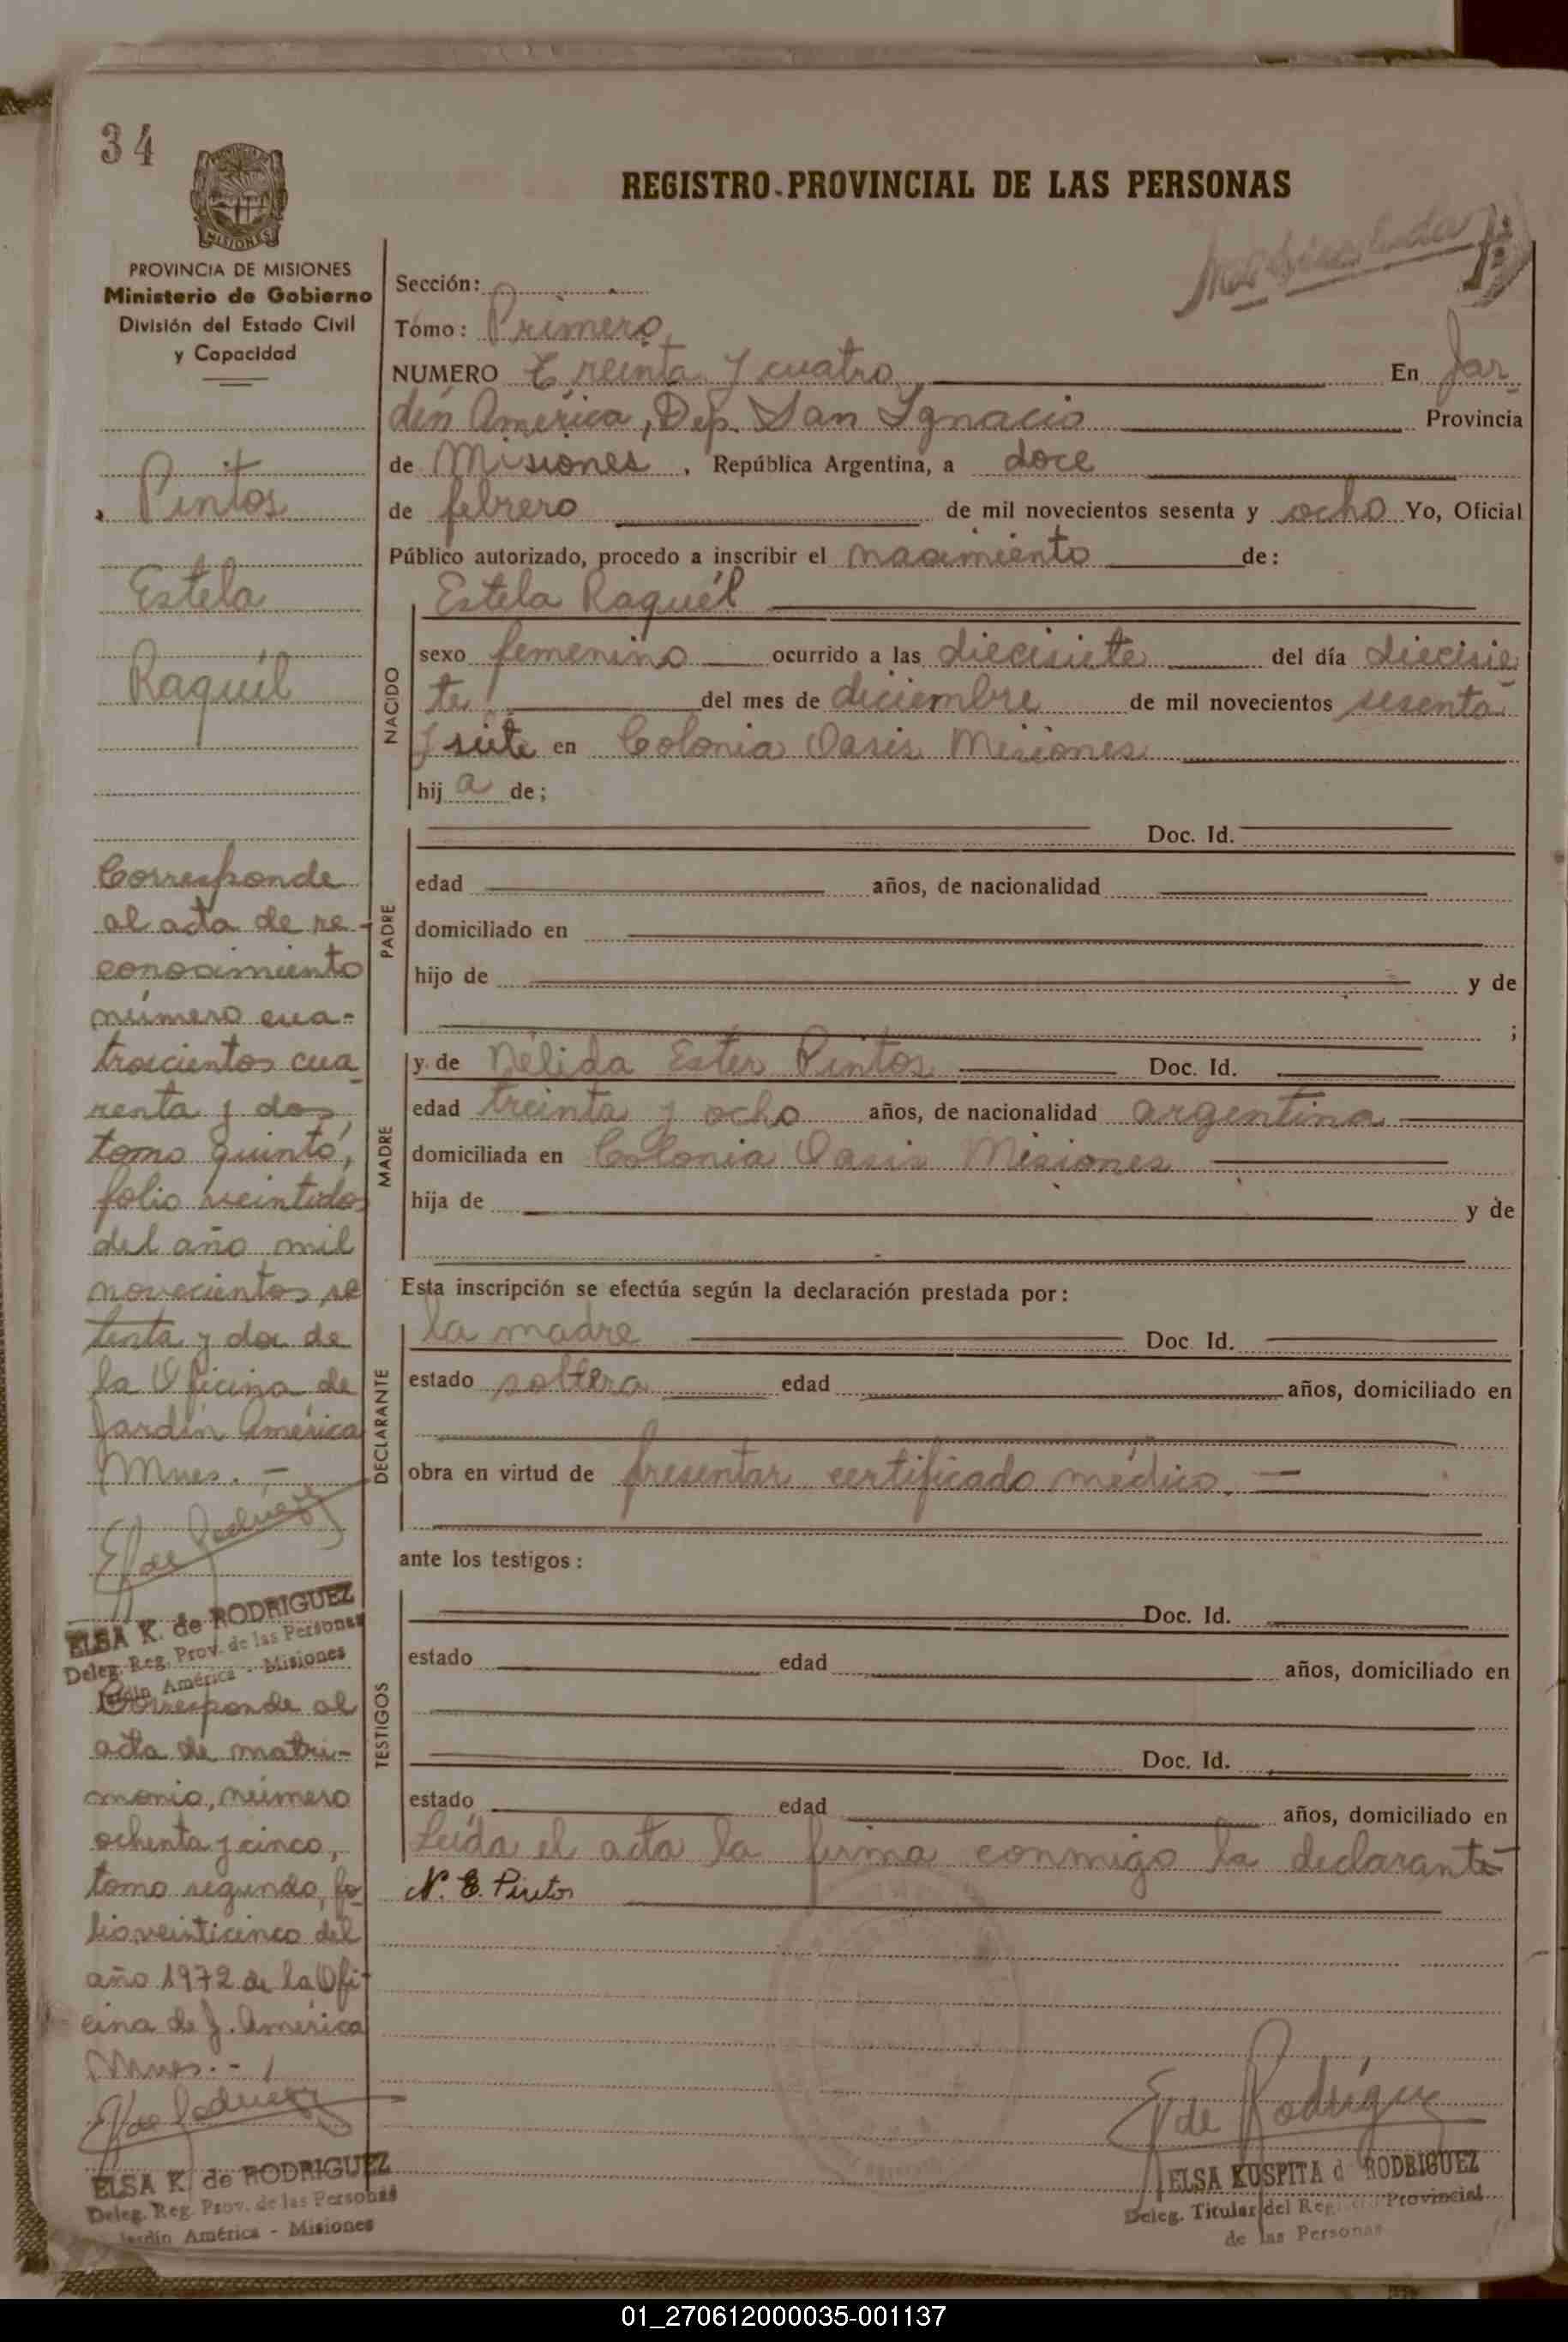 34
MISIONES
PROVINCIA DE MISIONES
Ministerio de Gobierno
División del Estado Civil
y Capacidad
Pintos
Estela
Raquél
Corresponde
al acta de re-
conocimiento
número cua-
trocientos cua
renta y dos,
tomo quinto,
folio veintidos
del año mil
novecientos se
tenta y dos de
la Oficina de
Jardín América
Mnes. -
E K de Rodriguez
ELSA K. de RODRIGUEZ
Deleg. Reg. Prov. de las Personas
Jardín América - Misiones
Corresponde al
acta de matri-
monio, número
ochenta y cinco,
tomo segundo, fo
lio veinticinco del
año 1972 de la Ofi-
cina de J. América
Mnes. -
E K de Rodriguez
ELSA K. de RODRIGUEZ
Deleg. Reg. Prov. de las Personas
Jardín América - Misiones
REGISTRO PROVINCIAL DE LAS PERSONAS
Sección:
Tomo: Primero
NUMERO Treinta y cuatro En Jar-
dín América, Dep. San Ignacio Provincia
de Misiones, República Argentina, a doce
de febrero de mil novecientos sesenta y ocho Yo, Oficial
Público autorizado, procedo a inscribir el nacimiento de:
NACIDO
Estela Raquél
sexo femenino ocurrido a las diecisiete del día diecisie-
te del mes de diciembre de mil novecientos sesenta
y siete en Colonia Oasis Misiones
hija de;
PADRE
Doc. Id.
edad años, de nacionalidad
domiciliado en
hijo de y de
;
MADRE
y de Nélida Ester Pintos Doc. Id.
edad treinta y ocho años, de nacionalidad argentina
domiciliada en Colonia Oasis Misiones
hija de y de
Esta inscripción se efectúa según la declaración prestada por:
DECLARANTE
la madre Doc. Id.
estado soltera edad años, domiciliado en
obra en virtud de presentar certificado médico. -
ante los testigos:
TESTIGOS
Doc. Id.
estado edad años, domiciliado en
Doc. Id.
estado edad años, domiciliado en
Leída el acta la firma conmigo la declarante
N. E. Pintos
E K de Rodriguez
ELSA KUSPITA d RODRIGUEZ
Deleg. Titular del Reg Provincial
de las Personas
01_270612000035-001137